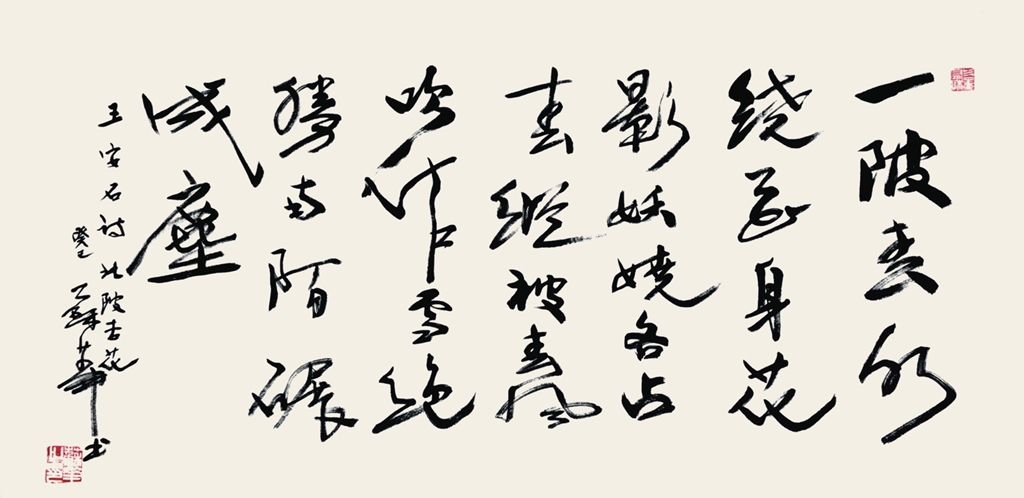 一陂春水
绕花身花
影妖娆各占
春縱被春風
吹作雪絶
勝南陌碾
成塵
王安石诗北陂杏花
癸巳蘇華书